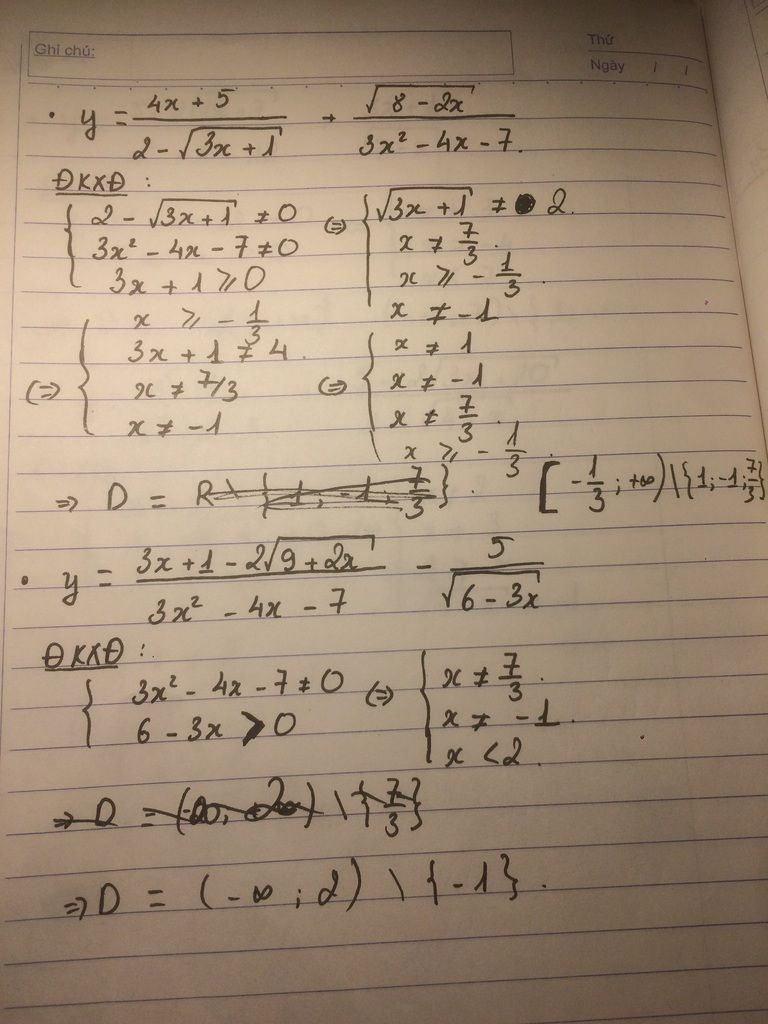 Ghi chú:
Thứ
Ngày / /
• y = (4x + 5)/(2 - √(3x + 1)) + √(8 - 2x)/(3x² - 4x - 7).
ĐKXĐ :
{ 2 - √(3x + 1) ≠ 0 (=) { √(3x + 1) ≠ 2.
3x² - 4x - 7 ≠ 0 x ≠ 7/3.
3x + 1 ⩾ 0 x ⩾ - 1/3.
x ≠ -1
(=) { x ⩾ - 1/3 (=) { x ≠ 1
3x + 1 ≠ 4. x ≠ -1
x ≠ 7/3 x ≠ 7/3.
x ≠ -1 x ⩾ - 1/3.
=> D = R \ { 1, -1, 7/3 }. [ -1/3 ; +∞) \ {1; -1; 7/3}
• y = (3x + 1 - 2√(9 + 2x))/(3x² - 4x - 7) - 5/√(6 - 3x)
ĐKXĐ :
{ 3x² - 4x - 7 ≠ 0 (=) { x ≠ 7/3.
6 - 3x > 0 x ≠ -1.
x < 2.
=> D = (-∞; 2) \ {7/3}
=> D = (-∞ ; 2) \ {-1}.